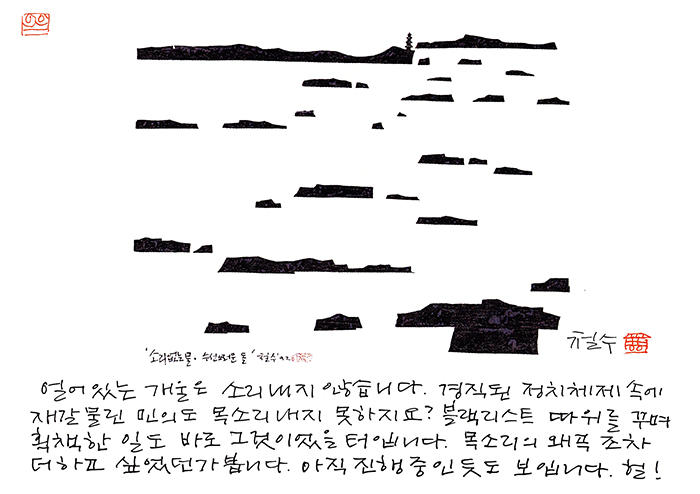 '소리없는 물, 수선스러운 돌' 철수 '92
철수
얼어있는 개울은 소리내지 않습니다. 경직된 정치체제 속에
재갈 물린 민의도 목소리 내지 못하지요? 블랙리스트 따위를 꾸며
획책한 일도 바로 그것이었을 터입니다. 목소리의 왜곡 조차
더하고 싶었던가 봅니다. 아직 진행중인듯도 보입니다. 헐!